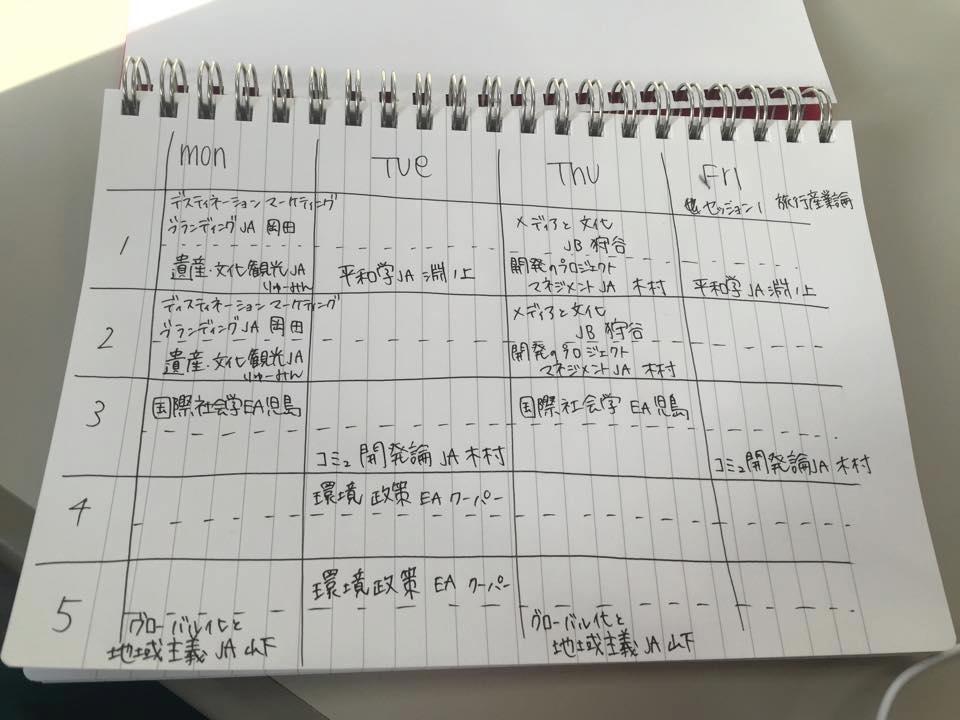 mon Tue Thu Fri
1
デスティネーション マーケティング
ブランディング JA 岡田
遺産・文化観光 JA
りゅーみん
平和学 JA 淵ノ上
メディアと文化
JB 狩谷
開発のプロジェクト
マネジメント JA 木村
セッション1 旅行産業論
平和学 JA 淵ノ上
2
ディスティネーション マーケティング
ブランディング JA 岡田
遺産・文化観光 JA
りゅーみん
メディアと文化
JB 狩谷
開発のプロジェクト
マネジメント JA 木村
3
国際社会学 EA 児島
国際社会学 EA 児島
コミュ開発論 JA 木村
コミュ開発論 JA 木村
4
環境政策 EA クーパー
5
環境政策 EA クーパー
グローバル化と
地域主義 JA 山下
グローバル化と
地域主義 JA 山下